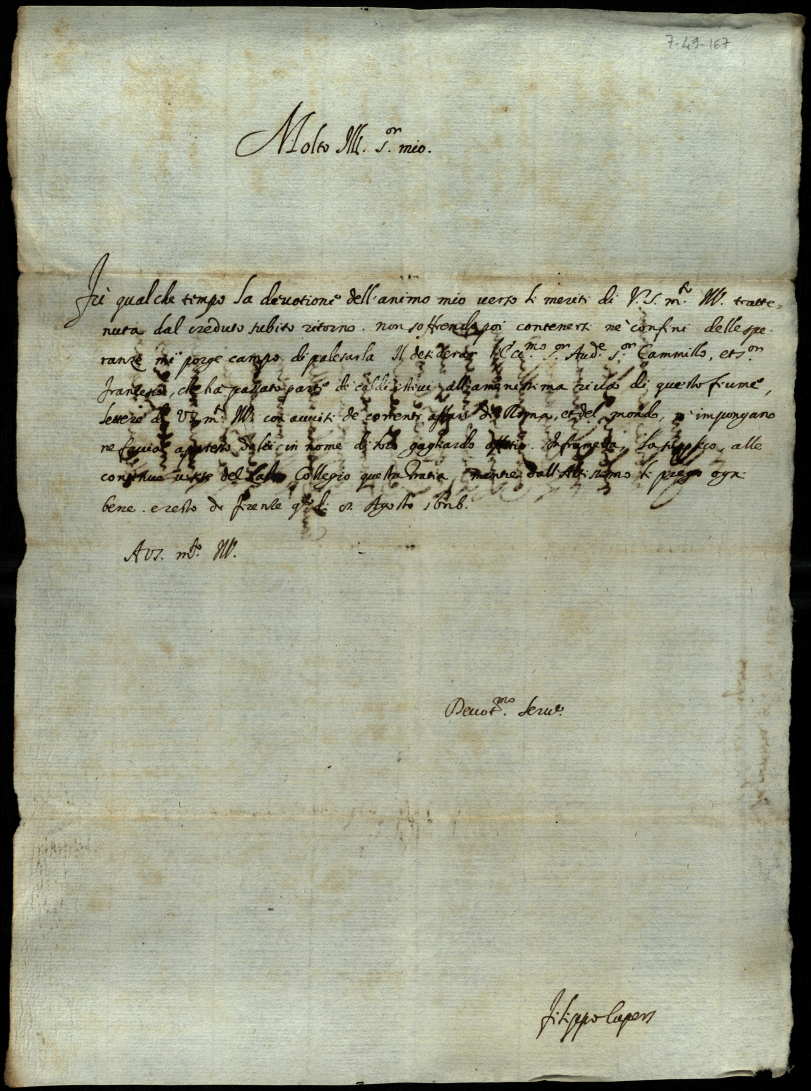 7-49-167
Molto Ill. s.or mio.
Fù qualche tempo la devotione dell'animo mio verso li meriti di V.S. m.to Ill. tratte=
nuta dal creduto subito ritorno. non soffrendo poi contenersi ne confini delle spe
ranze mi porge campo di palesarla Il desiderar l'Ecc.mo s.or Aud.e s.or Cammillo, et s.or
francesco, che ha passato parte de caldi estivi all'amenissima riva di questo fiume,
lettere di VS m.to Ill. con avvisi de correnti affari di Roma, et del mondo, m'impongano
ne faccia appresso di lei in nome di gagliardo la supplico, alle
continue del Collegio questa gratia, mentre dall'Altissimo li prego ogni
bene. e resto di firenze q.to di Agosto
A VS. m.to Ill.
Devot.mo Serv.e
filippo Capers